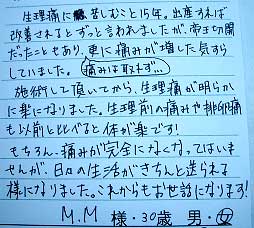 生理痛に苦しむこと15年。出産すれば
改善されるとずっと言われましたが、帝王切開
だったこともあり、更に痛みが増した気すら
していました。痛みは取れず…
施術して頂いてから、生理痛が明らか
に楽になりました。生理前の痛みや排卵痛
も以前と比べると体が楽です！
もちろん、痛みが完全になくなってはいま
せんが、日々の生活がきちんと送られる
様になりました。これからもお世話になります！
M.M 様・30歳 男・女